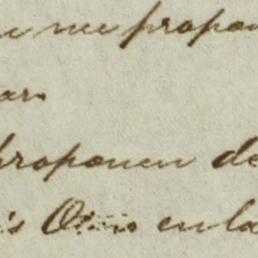 me propon
ar.
proponen de
is Otoño en la